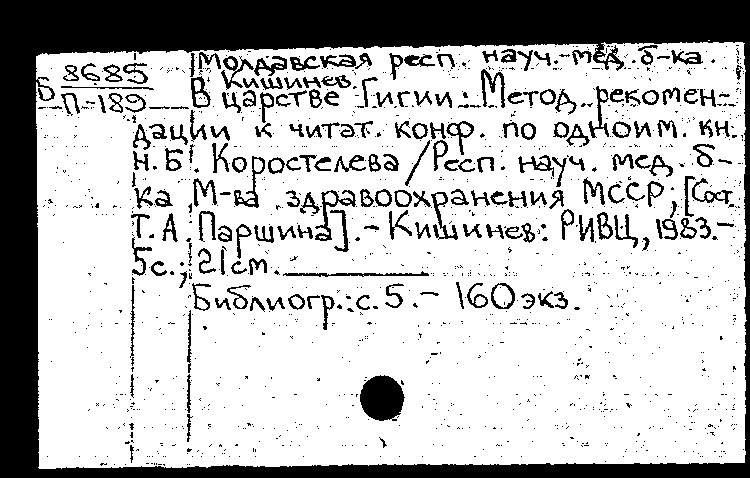 Молдавская респ. науч.-мед. б-ка.
Кишинев.
Б 8685
П-189
В царстве Гигии: Метод. рекомен-
дации к читат. конф. по одноим. кн.
Н.Б. Коростелева / Респ. науч. мед. б-
ка М-ва здравоохранения МССР; [Сост.
Т.А. Паршина]. - Кишинев: РИВЦ, 1983.-
5с.; 21см.
Библиогр.: с. 5. - 160 экз.